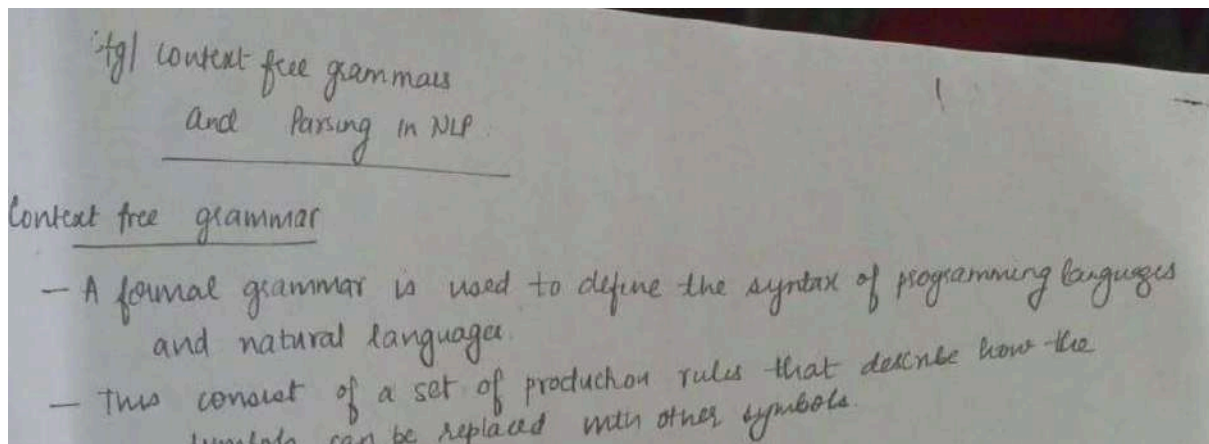 context free grammars
and Parsing in NLP.
Context free grammar
- A formal grammar is used to define the syntax of programming languages
and natural languages.
- This consist of a set of production rules that describe how the
symbols can be replaced with other symbols.